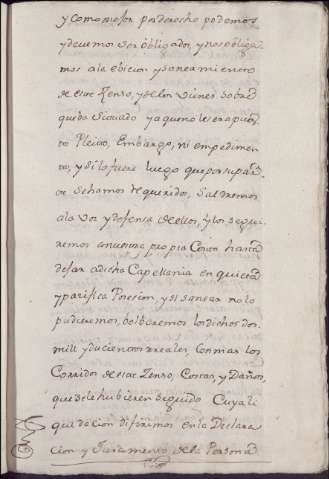 y como mejor por derecho podemos
y devemos ser obligados, y nos obliga
mos ala evicion y saneamiento
de este Zenso, y delos vienes sobre
queda situado ya queno lesera puesto
Pleito, Embargo, ni empedimen
to, y si lo fuere luego que por su par
te seamos requeridos, saldremos
ala voz y defensa de ellos, y los segui
remos a nuestra propia Costa hasta
dejar adicha Capellania en quieta
y pacifica Posesion, y si sanear no lo
pudieremos, bolberemos los dichos dos
mill y ducientos reales Con mas los
Corridos de este Zenso, Costas, y Daños,
que sele hubieren seguido Cuya li
quidacion diferimos en la Declara
cion y Juramento de la Persona